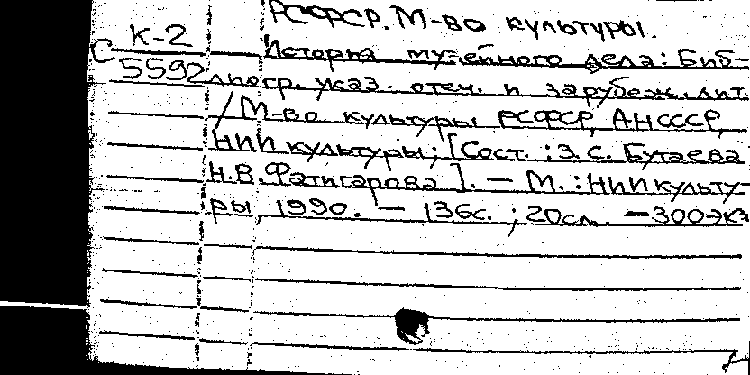 РСФСР. М-во культуры.
К-2
С
5592
История музейного дела: Биб-
лиогр. указ. отеч. и зарубеж. лит.
/ М-во культуры РСФСР, АН СССР,
НИИ культуры; [Сост.: Э.С. Бутаева
Н.В. Фатигарова]. — М.: НИИ культу-
ры, 1990. — 136с.; 20см. — 300 экз